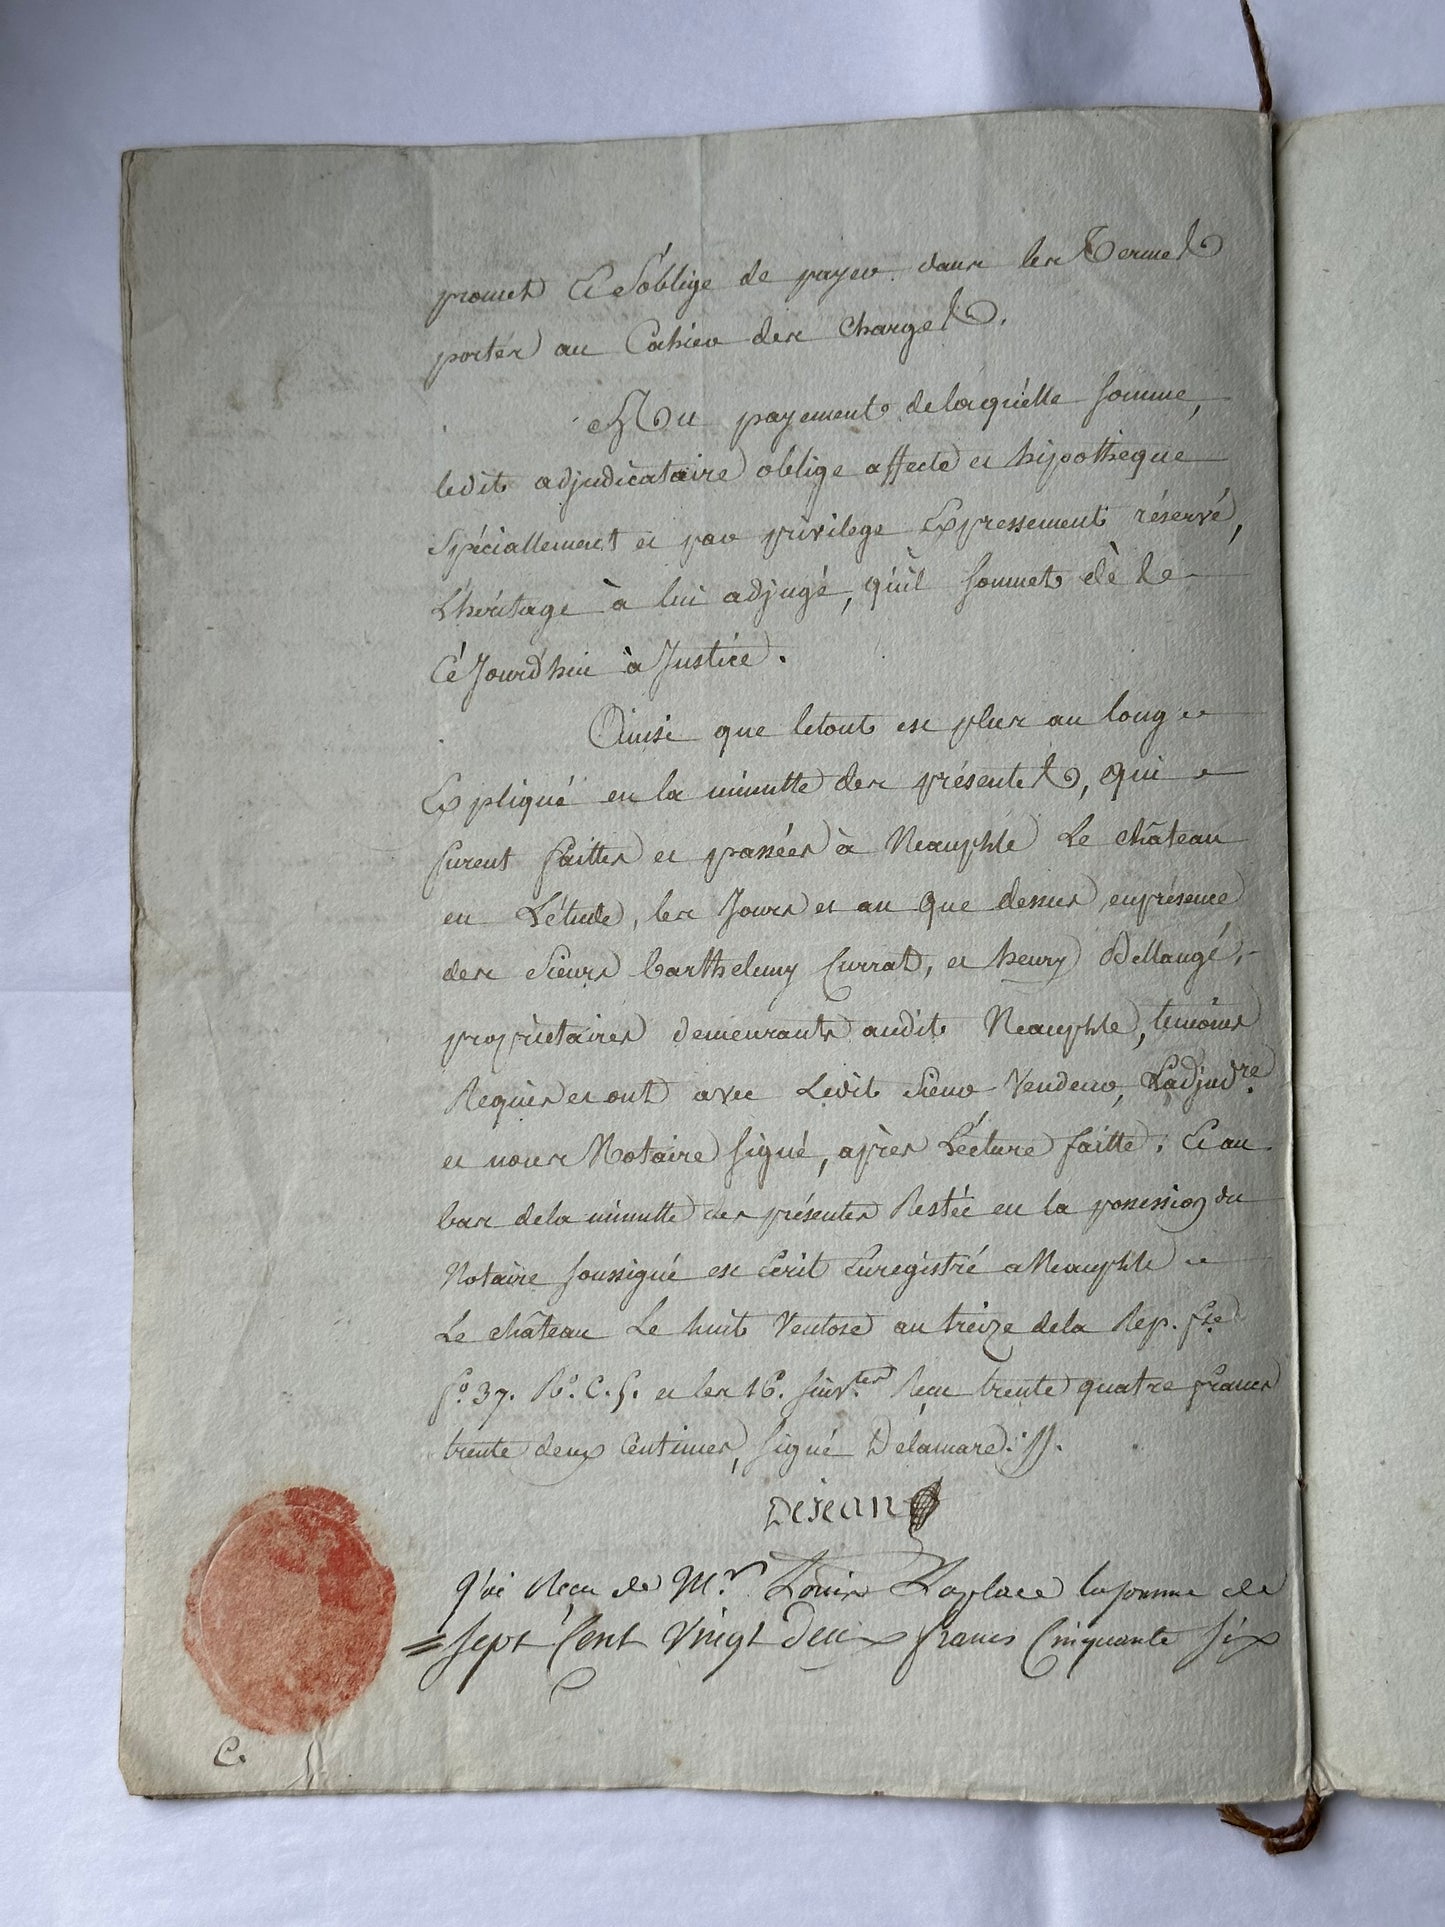 promet Et S'oblige de payer dans les Termes
portés au Cahier des Charges.
Au payement de laquelle somme,
ledit adjudicataire oblige affecte et hipotheque
Spéciallement et par privilege Expressement réservé,
L'héritage à lui adjugé, qu'il soumet dès
Cé Jourd'hui à Justice.
Ainsi que letout est plus au long
Expliqué en la minutte des présentes, qui
furent faittes et passées à Neauphle Le château
en L'étude, les Jours et an que dessus, en présence
des Sieurs barthelemy Currat, et henry Bellangé,
propriétaires demeurants audit Neauphle, témoins
Requis et ont avec Ledit Sieur Vendeur, L'adjudre
et nous Notaire signé, après Lécture faitte. Et au
bas dela minutte des présentes Restée en la possession du
Notaire soussigné est Ecrit Enregistré a Neauphle
Le château Le huit Ventose an treize dela Rép. fse
fo. 37. Ro. C. 5. et les 1 C. suivtes Reçu trente quatre francs
trente deux Centimes, signé Delamare.
Dejean
J'ai Reçu de Mr. Louis Laplace la somme de
= sept Cent Vingt deux francs Cinquante six
C.